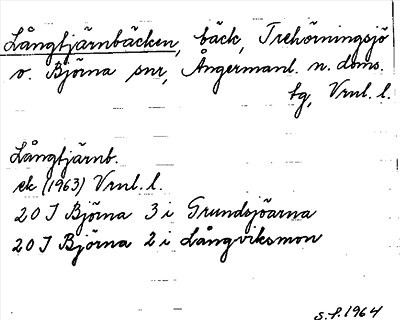 Långtjärnbäcken, bäck, Trehörningsjö
o. Björna snr, Ångermanl. n. doms.
tg, Vrnl. l.
Långtjärnb.
ek (1963) Vrnl. l.
20 J Björna 3 i Grundsjöarna
20 J Björna 2 i Långviksmon
S.f. 1964